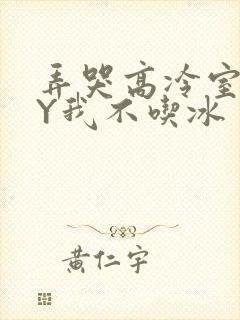 弄哭高冷室
Y我不喫冰
黄仁宇